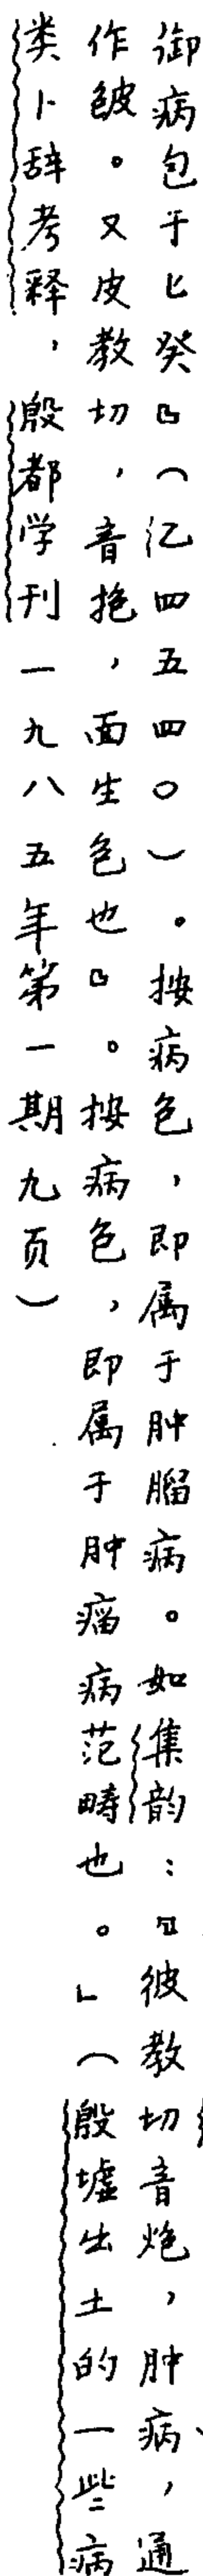 御病包于匕癸』（亿四五四〇）。按病色，即属于肿腦病。如集韵：『彼教切音炮，肿病，通
作皰。又皮教切，音抱，面生色也』。按病色，即属于肿瘤病范畴也。」（殷墟出土的一些病
类卜辞考释，殷都学刊一九八五年第一期九页）